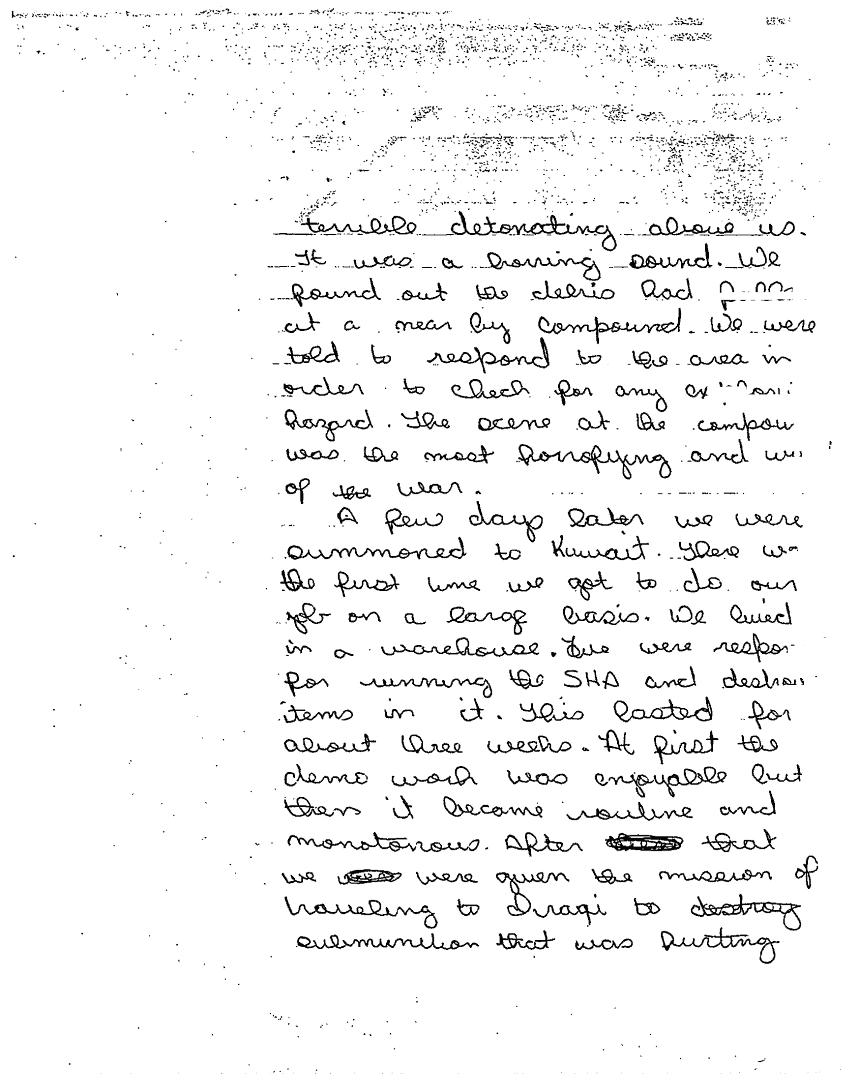 terrible detonating above us.
It was a horring sound. We
found out the debris had
at a near by compound. We were
told to respond to the area in
order to check for any
hazard. The scene at the compou
was the most horrofying and
of the war.
A few days later we were
summoned to Kuwait. There
the first time we got to do our
job on a large basis. We lived
in a warehouse. We were respon
for running the SHA and destroy
items in it. This lasted for
about three weeks. At first the
demo work was enjoyable but
then it became routine and
monotonous. After that
we were given the mission of
traveling to Iraqi to destroy
submunition that was hurting